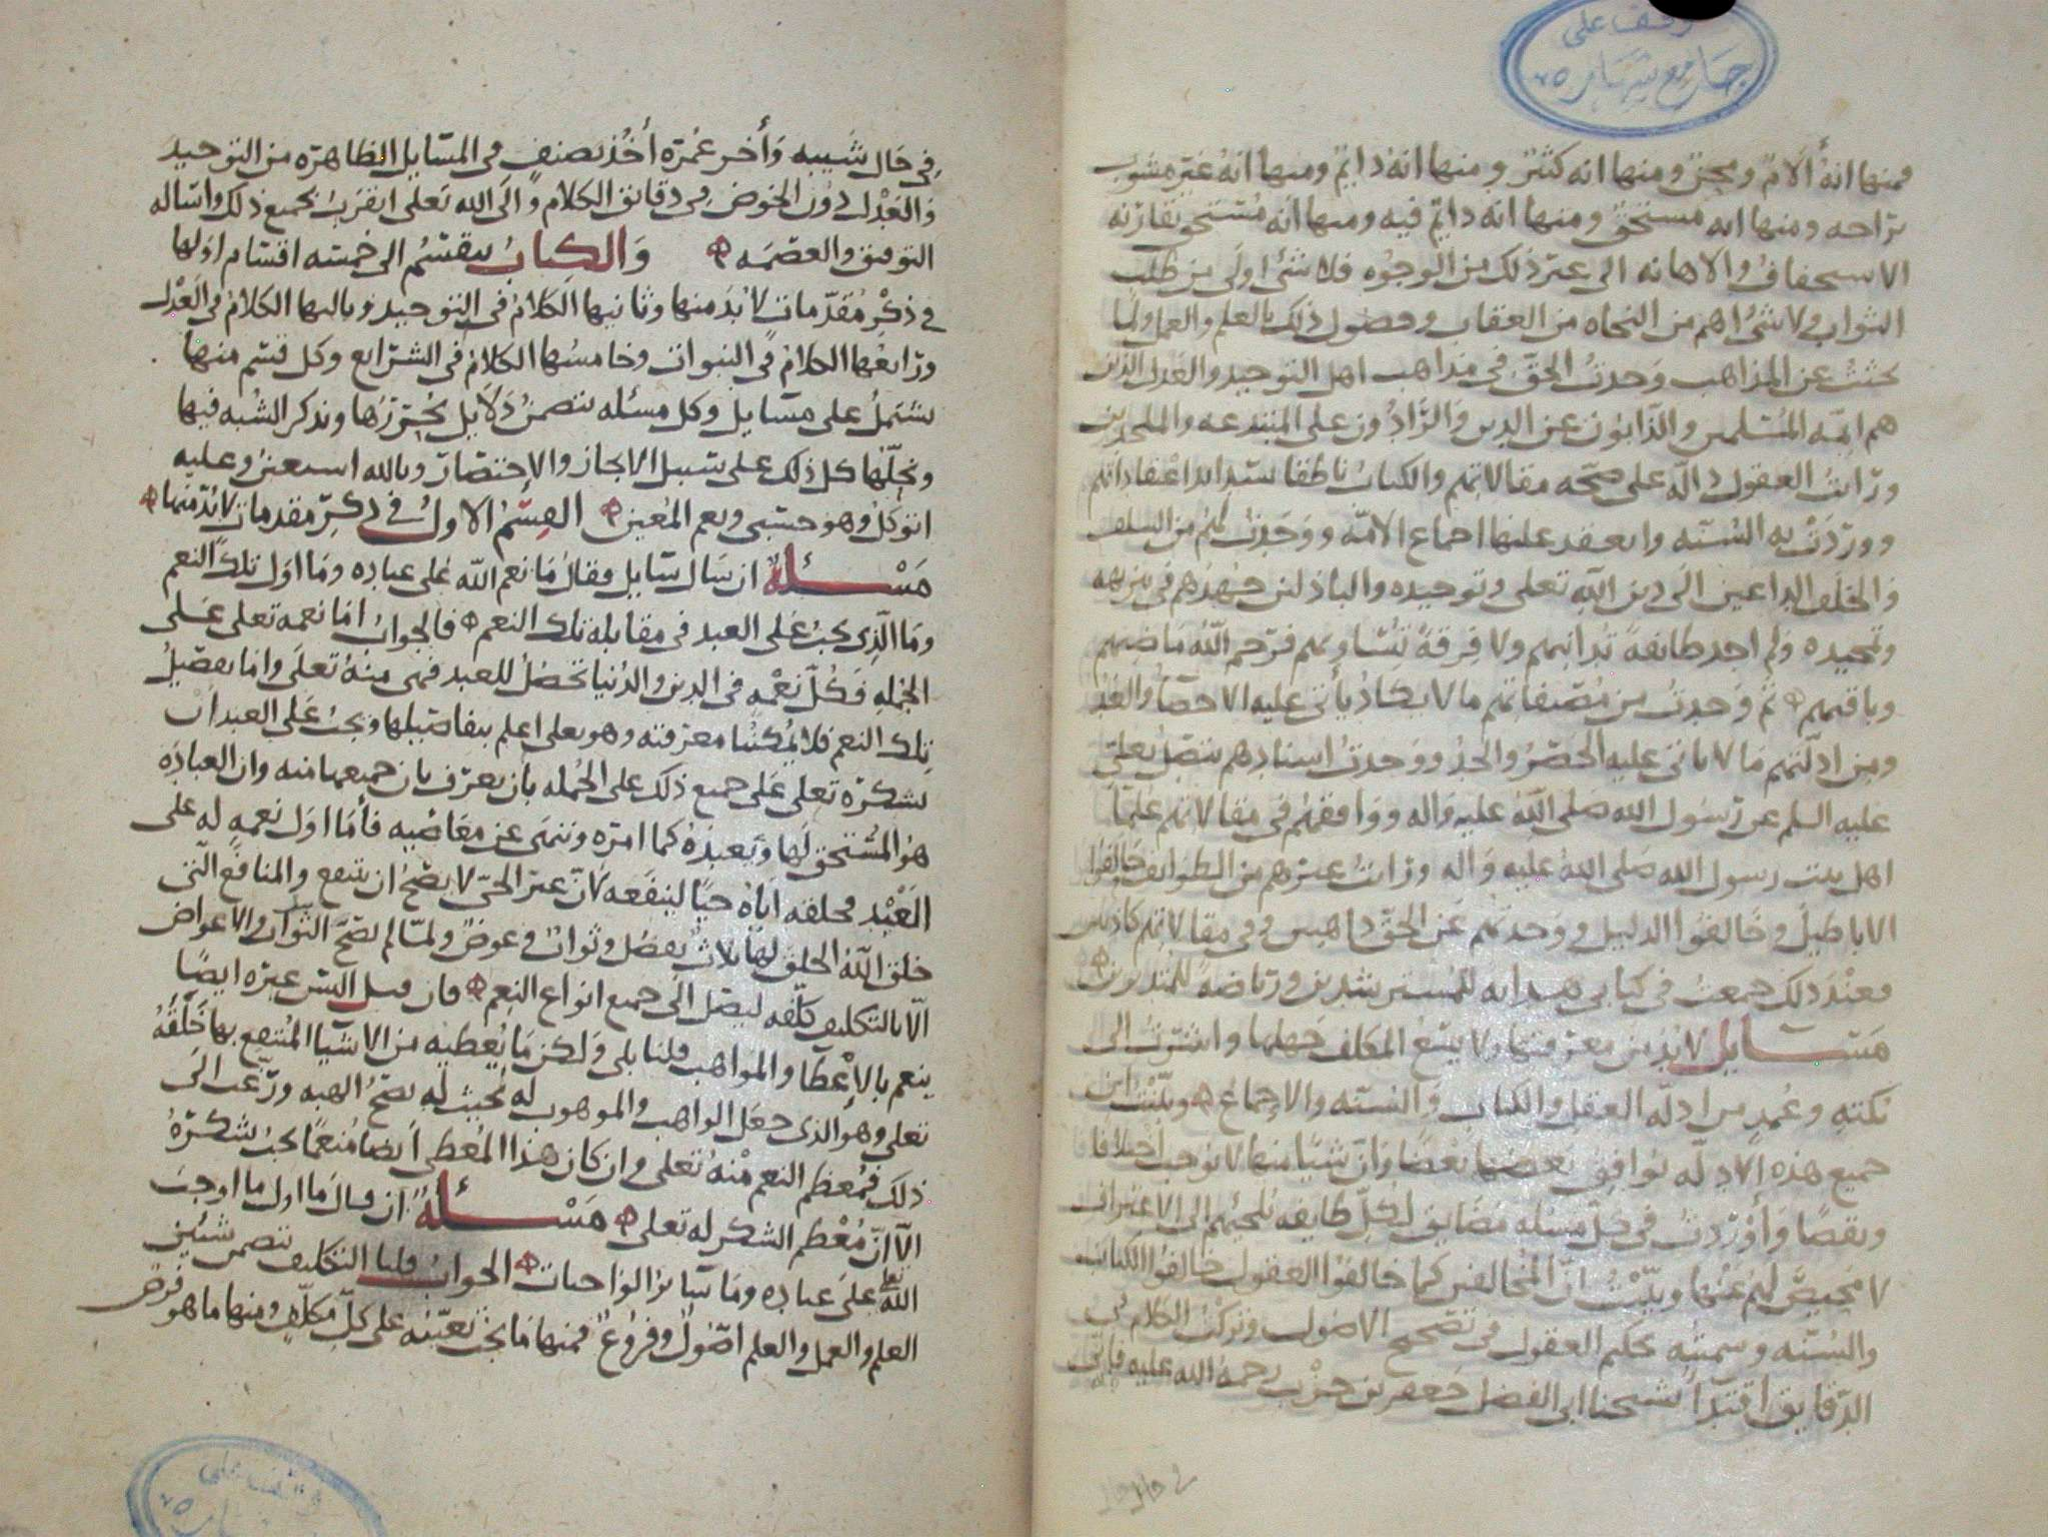 وقف على
جامع شهاره
فمنها انهُ أَلآمٌ ومحنٌ ومنها انه كثيرٌ ومنها انهُ دايمٌ ومنها انهُ غير مشوب
براحه ومنها انه مستحقٌ ومنها انه دايمٌ فيه ومنها انه مُستحق تقارنه
الاستخفافُ والاهانه الى غير ذلك من الوجُوه فلا شئ اولى من طلب
الثواب ولا شئ اهم من النجاه من العقاب وحصول ذلك بالعلم والعمل ولمّا
بحثتُ عن المذاهب وَجدتُ الحقَّ في مذاهب اهل التوحيد والعَدل الذين
هم ايمّه المُسلمين والذّابّون عن الدين وَالرَّادُّون على المبتدعه والملحدين
ورَايتُ العقول دالّه على صحّه مقالاتهم والكتابَ ناطقا بسداد اعتقاداتهم
ووردَتْ به السُّنّه وانعقد عليها اجماع الامّه ووَجَدتُ لهُم من السلف
وَالخلف الداعين الَى دين اللّهِ تعلى وتوحيده والباذلين جُهدَهم في تنزيهه
وتمجيده ولم اجد طايفةً تُدانيهم ولا فِرقةً تُساويهم فرَحم اللّهُ مَاضيهم
وباقيهم ثم وَجدتُ من مُصّنفاتهم ما لا يكادُ يأتى عليه الاحصآ والعَدّ
ومن ادلّتهم مَا لا ياتى عليه الحَصْرُ والحدّ ووَجدتُ اسنادهم يتصلُ بعلى
عليه السلم عن رَسُول الله صَلى اللّهُ عليه وَاله ووَافقهُم في مقالاتهم عُلمآ
اهل بيت رسول الله صَلى اللهُ عليه وَاله ورَايتُ غيرهم من الطوايف خالفوا
الاباطيلَ وخَالفوُا الدليل ووَجدتهُم عَن الحَقّ ذاهبين وفي مقالاتهم كاذبين
فعنْدَ ذلك جمعتُ في كتابى هدايه للمُسترشدين ورياضه للمُتدينين
مَسَايل لا بُدّ من معرفتها ولا يسَعُ المكلف جَهلها واشرْتُ الى
نكتهٍ وعُمدٍ من ادلّه العقل والكتاب وَالسُنّه والاجماعِ وبيّنْتُ ان
جميع هذه الادِلّه توافِق بعضها بَعْضًا وَانّ شيًا منها لا يوجب اختلافا
ونقضًا وَأوْرَدتُ في كلّ مسئله مضَايق لكلّ طايفه تلجيُهم الى الاعتراف
لا مَحيصَ لهُم عنْها وبيّنْتُ انّ المُخالفين كما خالفوُا العقول خالفوُا الكتاب
والسُّنّه وسميتُه تحكيم العقول في تصحيح الاصُول وتركتُ الكلام في
الدّقايق اقتدآً بشيخنا ابى الفضل جَعفر بن حَرْب رحمهُ الله عليه فانّهُ
في حال
فِي حَال شَيبه وَأخر عُمرَه أخَذ يصنف في المسَايل الظاهرَه من التوحيد
وَالعَدْل دُون الخَوض في دقايق الكلام وَالَى الله تَعلى اتقرَبُ بجميع ذلك واسَاله
التوفيق والعصْمَه وَالكِتابُ ينقسْمُ الى خمسَه اقسَام اوّلها
في ذكْر مُقدّماتٍ لا بُدّ منها وثانيها الكَلامُ في التوحيد وثالثها الكلامُ في العَدْل
ورَابعُها الكلامُ في النبواتِ وخامسُها الكلامُ في الشرَايع وكل قسم منها
يشتملُ على مسَايل وكل مسئله تتضمنُ دَلايل نُحرّرَها ونذكر الشُبه فيها
ونحلّهَا كل ذلك على سبيل الايجاز والاختصَار وبالله استعينُ وعليه
اتوكلُ وهُو حسْبى ونعم المُعين القِسْمُ الاولُ في ذكر مقدماتٍ لا بُدّ منها
مَسْئلةٌ ان سَال سَايل فقال مَا نعم اللّه عَلى عباده ومَا اوّل تلك النعم
ومَا الّذِى يجبُ عَلى العبد في مقابلة تلك النعم فالجوابُ امّا نعمه تعلى عَلى
الجُملهِ فكُلّ نِعْمه في الدين والدُنيا تحَصُلُ للعبد فهى منهُ تعلَى وامّا تفصيلُ
تِلك النعم فلا يُمكنُنَا معرفته وهو تعلى اعلم بتفاصيلها ويجبُ عَلى العبد انْ
يشكرَه تعلى عَلى جميع ذلك على الجُمله بأن يعترف بان جميعها منه وان العبادَه
هوُ المُستحق لَها وَيعبدُهُ كما امرَه وينتهَى عن معَاصيه فأمَا اوّل نعمهٍ له على
العَبْد فخلقه ايّاهُ حيّا لينفعه لانّ غير الحَىّ لا يصّحُ ان ينتفع والمنافع الّتى
خلق اللّهُ الخلق لها ثلاثٌ تفضل وثوابٌ وعوضٌ ولمّا لم يصّح الثّوابُ والاعواض
الّا بالتكليف كلّفه ليصل الَى جميع انواع النِعم فان قيل اليس غيره ايضًا
ينعم بالاِعْطَا والمَواهب قلنا بلى وَلكن مَا يُعطيه من الاشيآ المُنتفع بها خَلَقهُ
تعلى وهُو الذى جعَل الواهب والموهوب له بحيث له تصّحُ الهبه ورغّب الَى
ذلك فمُعظم النعم منْهُ تعلى وان كان هذا المُعطى أيضا مُنعمًا يجبُ شكرهُ
الآ انّ مُعْظم الشكر له تعلى مَسْئلةٌ ان قالَ مَا اول مَا اوجبَ
اللّه تعلى على عباده ومَا سَايرُ الواجبات الجوابُ قلنا التكليف يتضمن شيئين
العلم والعمل والعلم اصُولٌ وفروُعٌ فمنها مَا يجبُ تعيّنه على كلّ مكلّفٍ ومنها ما هو فرض
وقف على